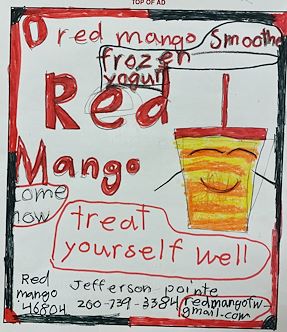 TOP OF AD
red mango Smoothe
frozen
yogurt
Red
Mango
Come
now
treat
yourself well
Red
mango
46804
Jefferson pointe
260-739-3384
redmangofw-
gmail.com